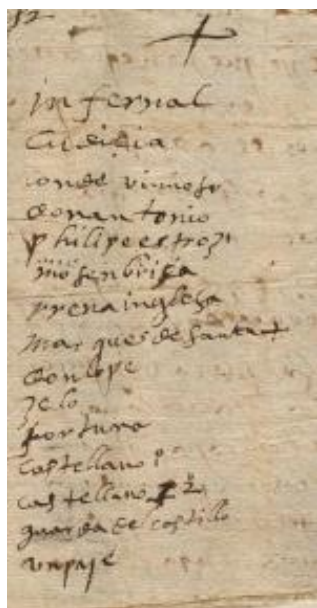 infernal
cudiçia
conde vimioso
don antonio
philipe estrozi
mosen brisa
rrena inglesa
marques de santa +
don lope
zelo
fortuna
castellano p̊
castellano 2º
guarda de castillo
vn paje